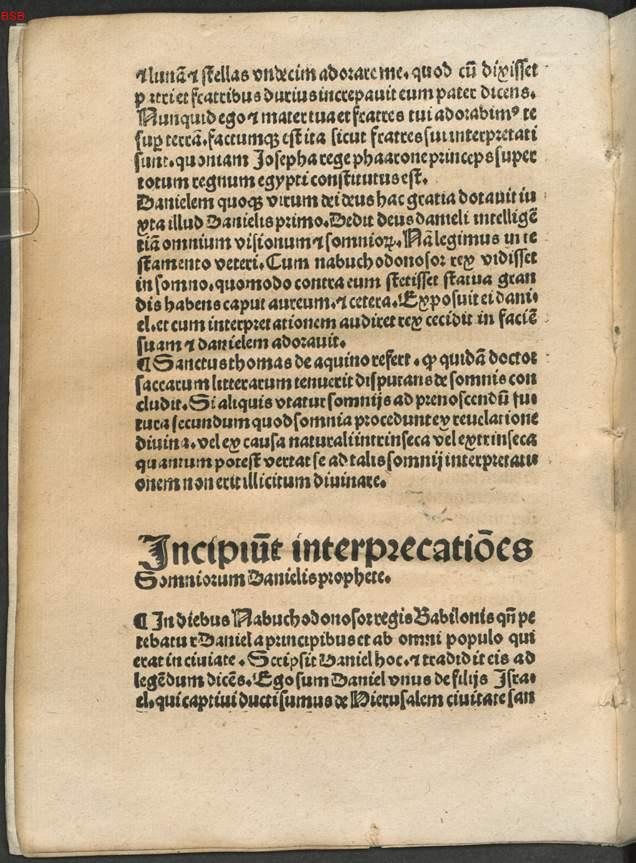 BSB
⁊ lunā ⁊ stellas vndecim adorare me. quod cū dixisset
patri et fratribus durius increpauit eum pater dicens.
Nunquid ego ⁊ mater tua et fratres tui adorabimꝰ te
suꝑ terrā. factumqꝫ est ita sicut fratres sui interpretati
sunt. quoniam Joseph a rege phaarone princeps super
totum regnum egypti constitutus est.
Danielem quoqꝫ virum dei deus hac gratia dotauit iu
xta illud Danielis primo. Dedit deus danieli intelligē
tiā omnium visionum ⁊ somnioꝝ. Nā legimus in te
stamento veteri. Cum nabuchodonosor rex vidisset
in somno. quomodo contra eum stetisset statua gran
dis habens caput aureum. ⁊ cetera. Exposuit ei dani⸗
el. et cum interpretationem audiret rex cecidit in faciē
suam ⁊ danielem adorauit.
¶ Sanctus thomas de aquino refert. ꝙ quidā doctor
saccarum litterarum tenuerit disputans de somnis con
cludit. Si aliquis vtatur somnijs ad prenoscendū fu⸗
tura secundum quod somnia procedunt ex reuelatione
diuina. vel ex causa naturali intrinseca vel extrinseca
quantum potest vertat se ad talis somnij interpretati
onem non erit illicitum diuinare.
Incipiūt interprecatiōes
Somniorum Danielis prophete.
¶ In diebus Nabuchodonosor regis Babilonis qn̄ pe
tebatur Daniel a principibus et ab omni populo qui
erat in ciuiate. Scripsit Daniel hoc. ⁊ tradidit eis ad
legēdum dicēs. Ego sum Daniel vnus de filijs Isra⸗
el. qui captiui ducti sumus de Hierusalem ciuitate san